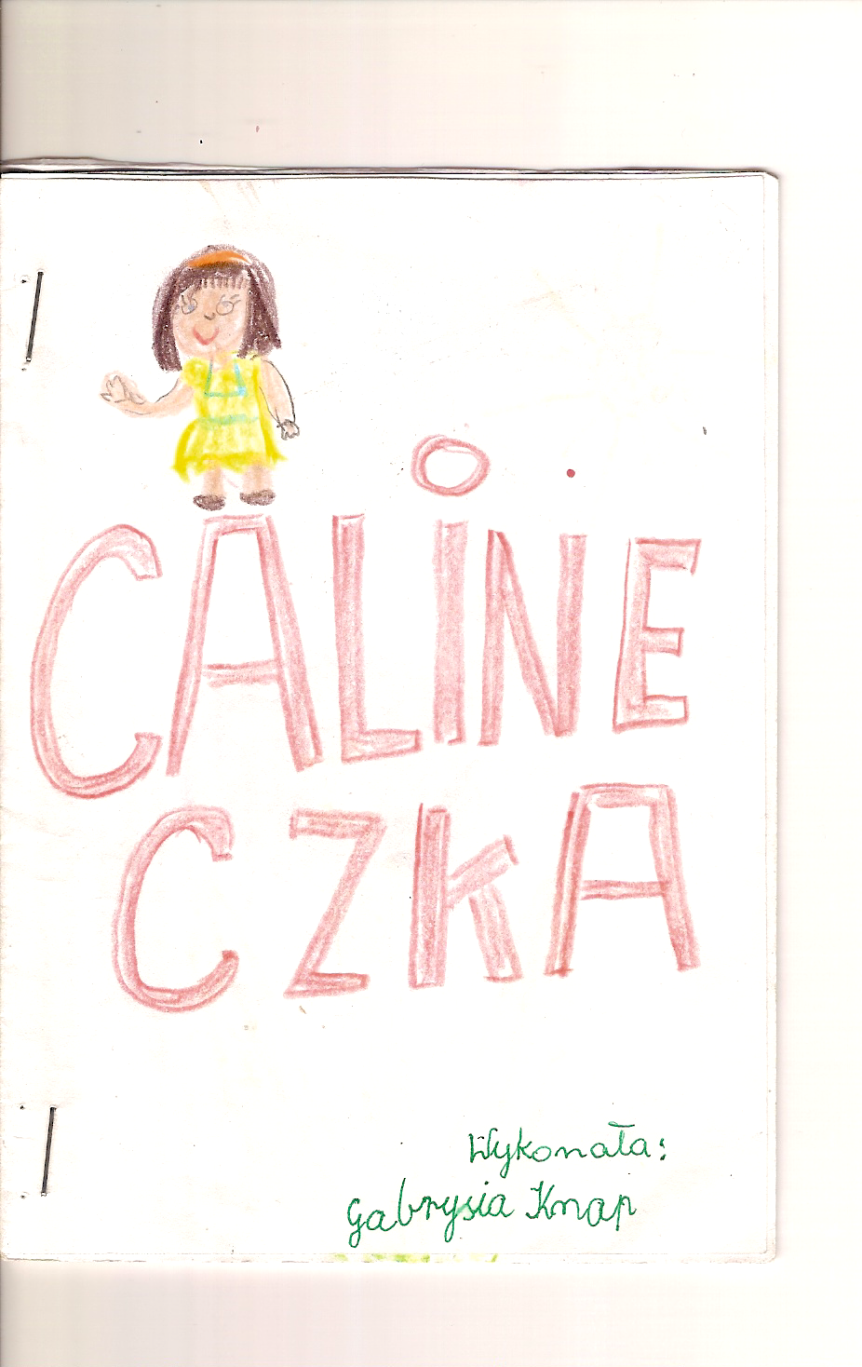 CALiNE
CZKA
Wykonała:
Gabrysia Knap